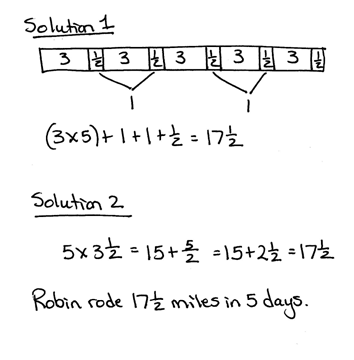 Solution 1
3 ½ 3 ½ 3 ½ 3 ½ 3 ½
1 1
(3×5)+1+1+½ = 17½
Solution 2
5×3½ = 15+5/2 =15+2½=17½
Robin rode 17½ miles in 5 days.